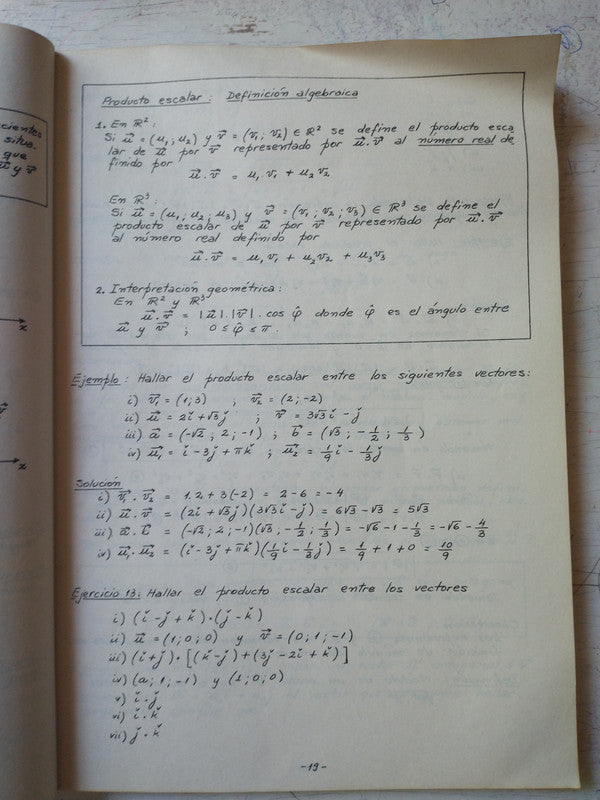 cientes
situa.
que
u⃗ y v⃗
x
v⃗
x
Producto escalar : Definición algebraica
1. En R² :
Si u⃗ = (u₁ ; u₂) y v⃗ = (v₁ ; v₂) ∈ R² se define el producto esca
lar de u⃗ por v⃗ representado por u⃗ . v⃗ al número real de
finido por
u⃗ . v⃗ = u₁ v₁ + u₂ v₂
En R³ :
Si u⃗ = (u₁ ; u₂ ; u₃) y v⃗ = (v₁ ; v₂ ; v₃) ∈ R³ se define el
producto escalar de u⃗ por v⃗ representado por u⃗ . v⃗
al número real definido por
u⃗ . v⃗ = u₁ v₁ + u₂ v₂ + u₃ v₃
2. Interpretación geométrica :
En R² y R³
u⃗ . v⃗ = |u⃗| . |v⃗| . cos φ̂ donde φ̂ es el ángulo entre
u⃗ y v⃗ ; 0 ≤ φ̂ ≤ π .
Ejemplo : Hallar el producto escalar entre los siguientes vectores :
i) v⃗₁ = (1 ; 3) ; v⃗₂ = (2 ; -2)
ii) u⃗ = 2ǐ + √3 ǰ ; v⃗ = 3√3 ǐ - ǰ
iii) a⃗ = (-√2 ; 2 ; -1) ; b⃗ = (√3 ; -1/2 ; 1/3)
iv) u⃗₁ = ǐ - 3ǰ + πǩ ; u⃗₂ = 1/9 ǐ - 1/3 ǰ
Solución
i) v⃗₁ . v⃗₂ = 1.2 + 3(-2) = 2 - 6 = -4
ii) u⃗ . v⃗ = (2ǐ + √3 ǰ)(3√3 ǐ - ǰ) = 6√3 - √3 = 5√3
iii) a⃗ . b⃗ = (-√2 ; 2 ; -1)(√3 ; -1/2 ; 1/3) = -√6 - 1 - 1/3 = -√6 - 4/3
iv) u⃗₁ . u⃗₂ = (ǐ - 3ǰ + πǩ)(1/9 ǐ - 1/3 ǰ) = 1/9 + 1 + 0 = 10/9
Ejercicio 13 : Hallar el producto escalar entre los vectores
i) (ǐ - ǰ + ǩ) . (ǰ - ǩ)
ii) u⃗ = (1 ; 0 ; 0) y v⃗ = (0 ; 1 ; -1)
iii) (ǐ + ǰ) . [(ǩ - ǰ) + (3ǰ - 2ǐ + ǩ)]
iv) (a ; 1 ; -1) y (1 ; 0 ; 0)
v) ǐ . ǰ
vi) ǐ . ǩ
vii) ǰ . ǩ
-19-